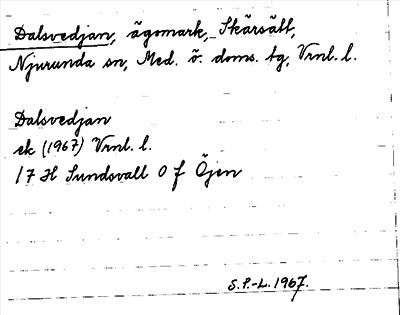 Dalsvedjan, ägomark, Skärsätt,
Njurunda sn, Med. ö. doms. tg, Vrnl. l.
Dalsvedjan
ek (1967) Vrnl. l.
17 H Sundsvall 0 f Öjen
S.P.-L. 1967.